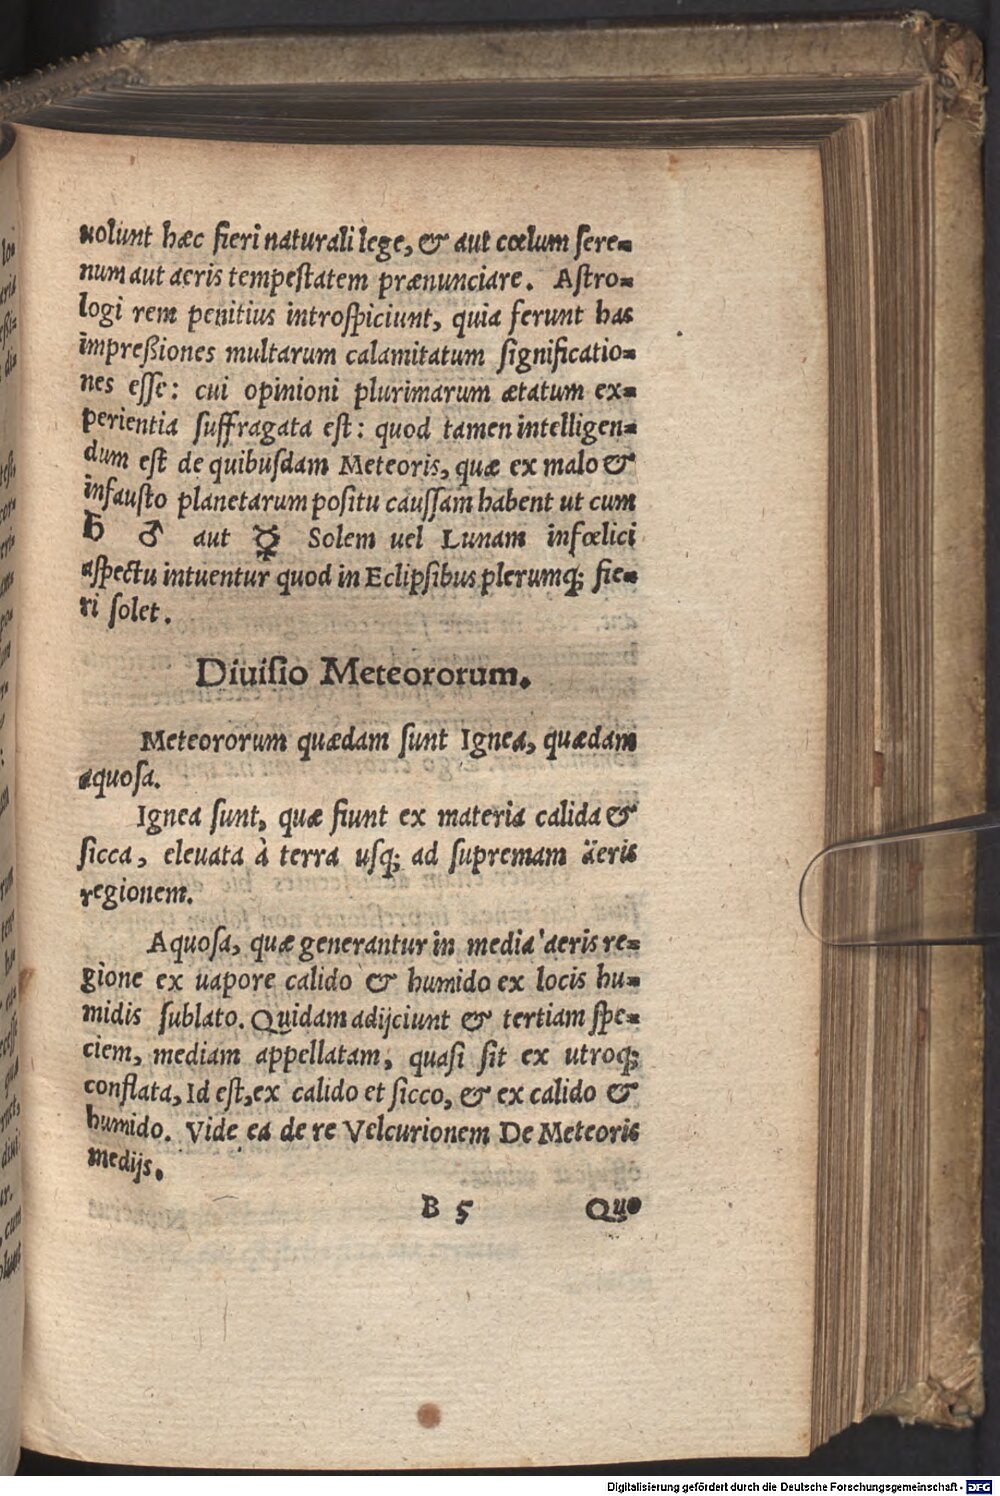 uolunt hæc fieri naturali lege, & aut cœlum sere-
num aut aeris tempeſtatem prænunciare. Aſtro-
logi rem penitius introſpiciunt, quia ferunt has
impreßiones multarum calamitatum ſignificatio-
nes eſſe: cui opinioni plurimarum ætatum ex-
perientia ſuffragata eſt: quod tamen intelligen-
dum eſt de quibuſdam Meteoris, quæ ex malo &
infauſto planetarum poſitu cauſſam habent ut cum
♄ ♂ aut ☿ Solem uel Lunam infœlici
aſpectu intuentur quod in Eclipſibus plerumq; fie-
ri ſolet.
Diuiſio Meteororum.
Meteororum quædam ſunt Ignea, quædam
aquoſa.
Ignea ſunt, quæ fiunt ex materia calida &
ſicca, eleuata à terra uſq; ad ſupremam äeris
regionem.
Aquoſa, quæ generantur in media aeris re-
gione ex uapore calido & humido ex locis hu-
midis ſublato. Quidam adijciunt & tertiam ſpe-
ciem, mediam appellatam, quaſi ſit ex utroq;
conflata, Id eſt, ex calido et ſicco, & ex calido &
humido. Vide ea de re Velcurionem De Meteoris
medijs.
B 5 Quo
Digitalisierung gefördert durch die Deutsche Forschungsgemeinschaft - DFG